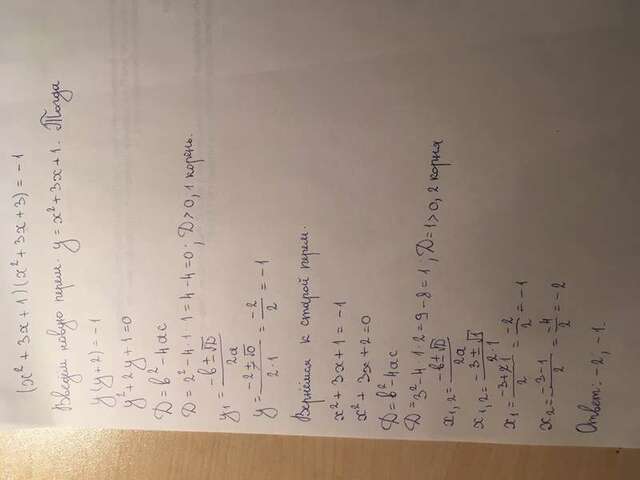 (x²+3x+1)(x²+3x+3)=-1
Введем новую перем. y=x²+3x+1. Тогда
y(y+2)=-1
y²+2y+1=0
D=b²-4ac
D=2²-4·1·1=4-4=0; D>0, 1 корень.
y₁=(-b±√D)/2a
y=(-2±√0)/(2·1)=-2/2=-1
Вернемся к старой перем.
x²+3x+1=-1
x²+3x+2=0
D=b²-4ac
D=3²-4·1·2=9-8=1; D=1>0, 2 корня
x₁,₂=(-b±√D)/2a
x₁,₂=(-3±√1)/(2·1)
x₁=(-3+1)/2=-2/2=-1
x₂=(-3-1)/2=-4/2=-2
Ответ: -2, -1.